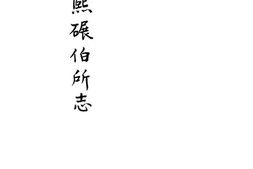 熙碾伯所志